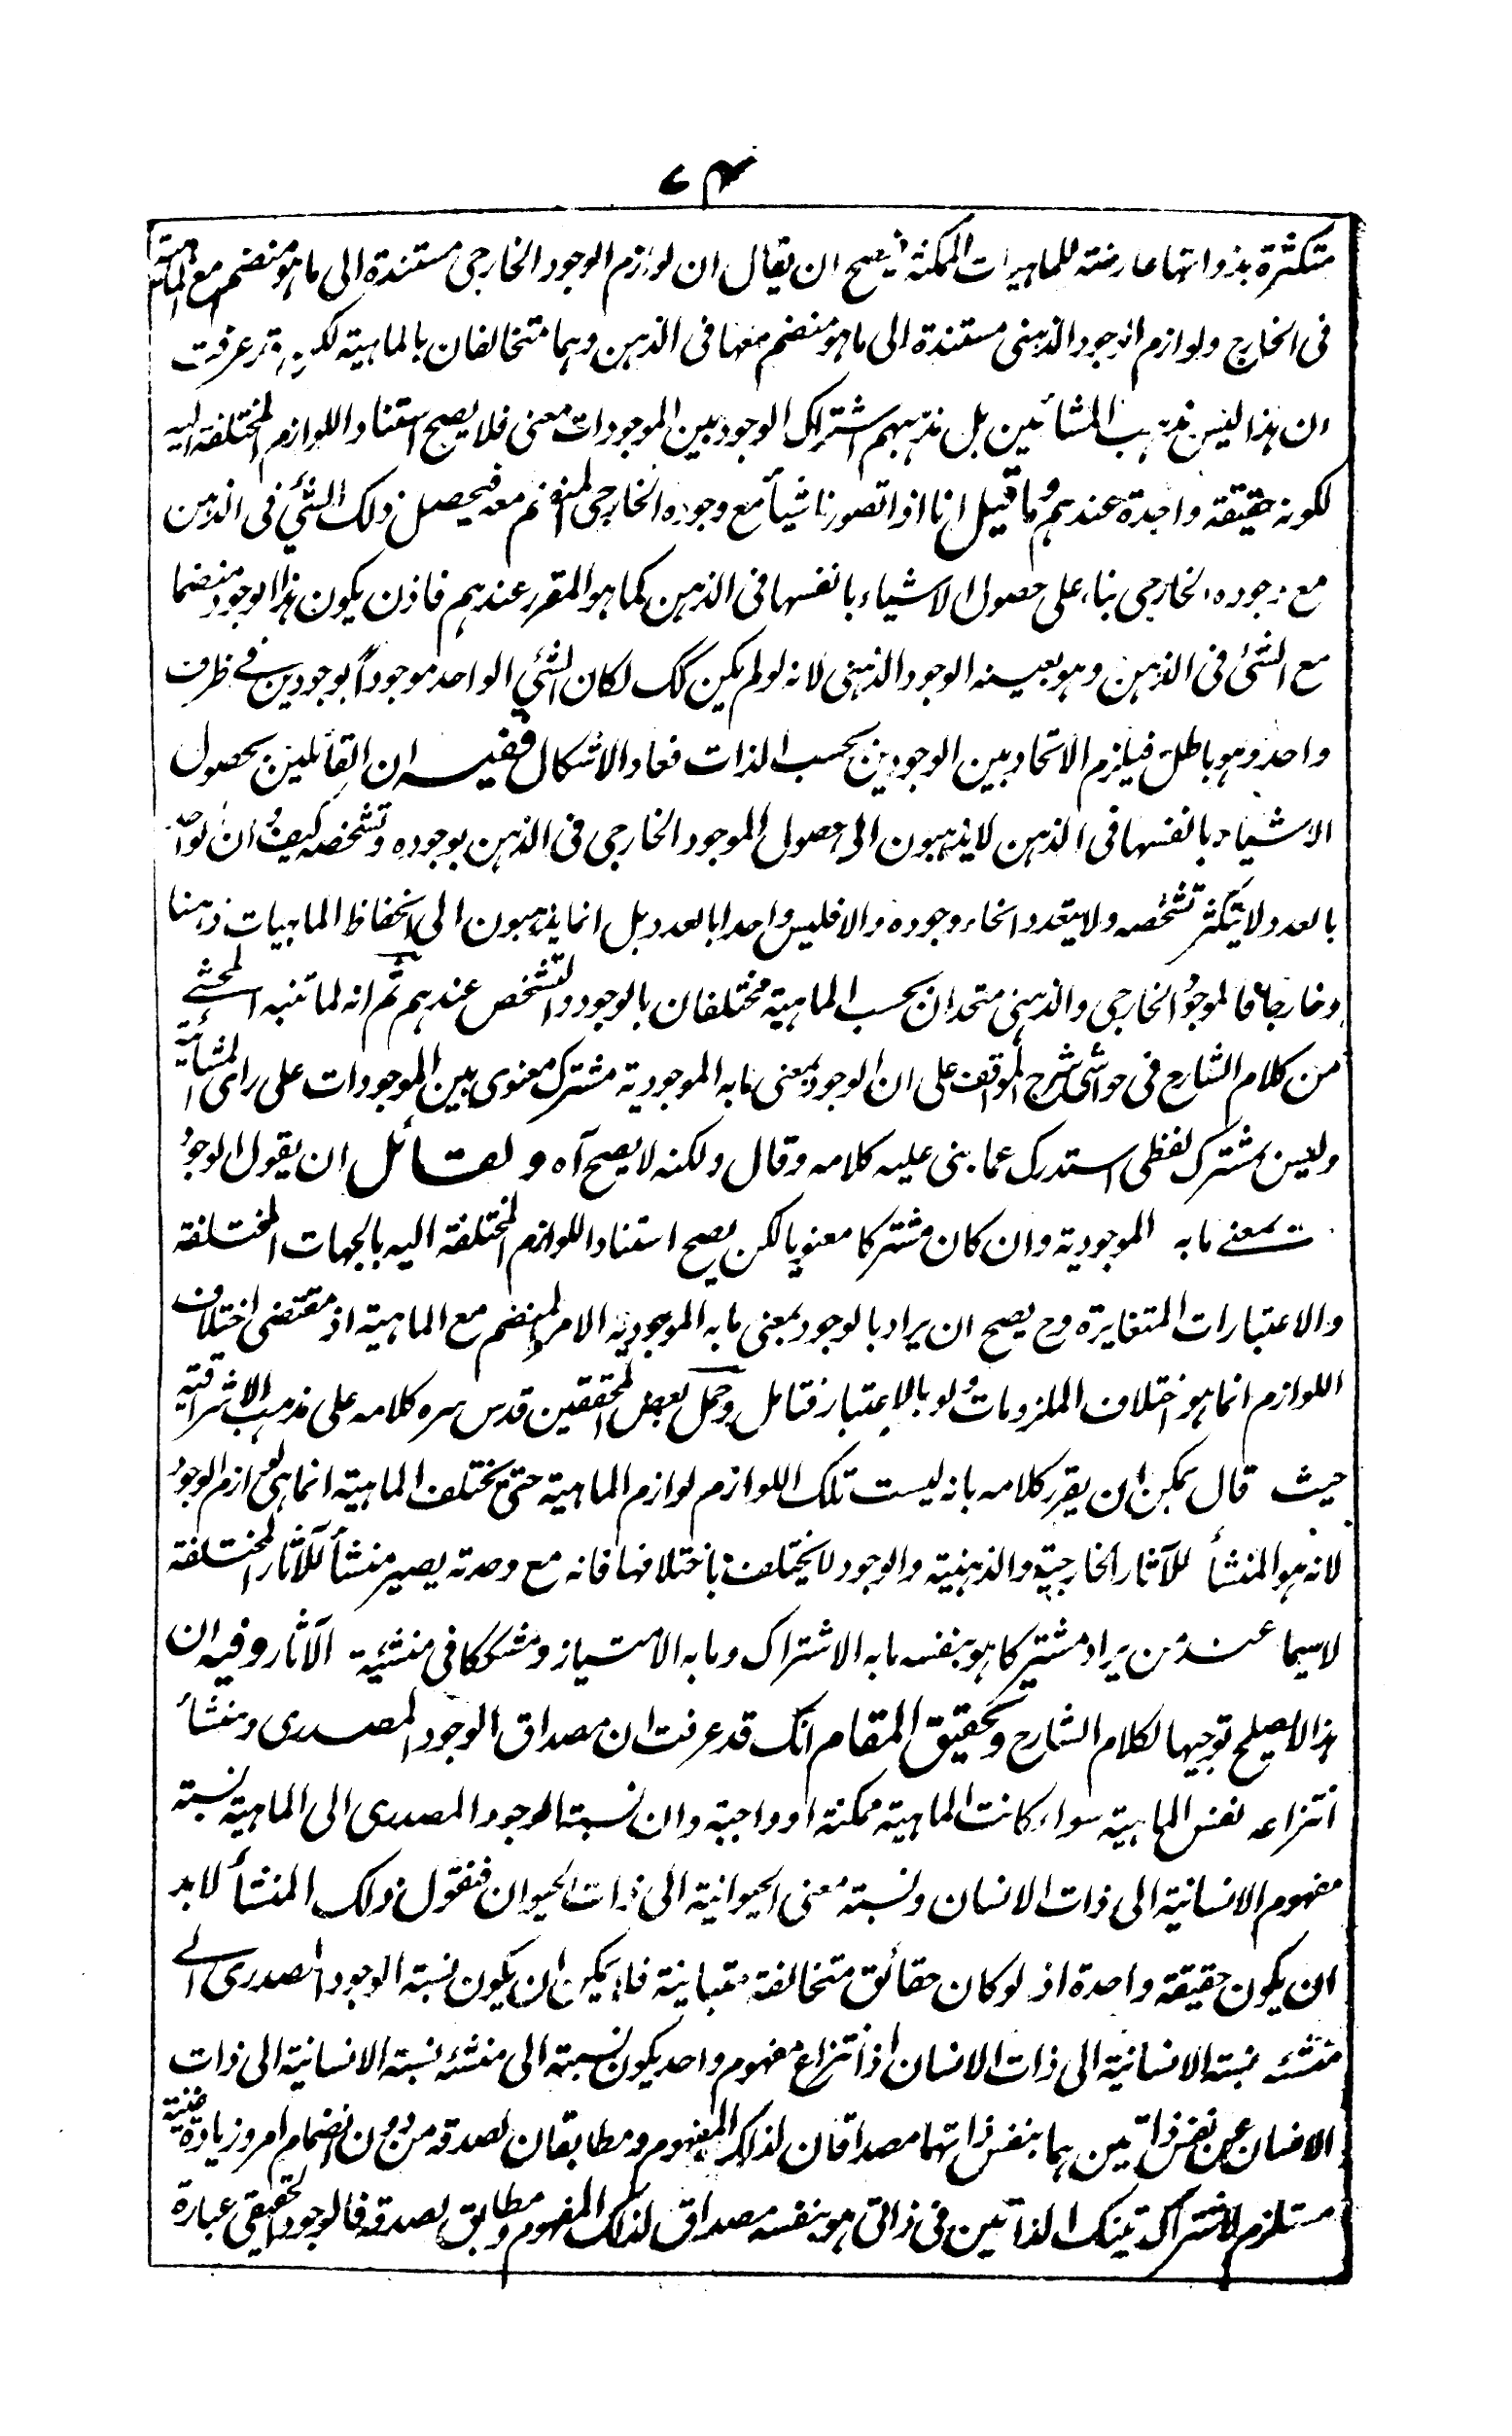 ٧٤
متكثرة بذواتها عارضة للماهيات الممكنة فيصح ان يقال ان لوازم الوجود الخارجى مستندة الى ما هو منضم مع الماهية
فى الخارج ولوازم الوجود الذهنى مستندة الى ما هو منضم معها فى الذهن وهما متخالفان بالماهية لكن قد عرفت
ان هذا ليس مذهب المشائين بل مذهبهم اشتراك الوجود بين الموجودات معنى فلا يصح استناد اللوازم المختلفة اليه
لكونه حقيقة واحدة عندهم وما قيل انا اذا تصورنا شيأ مع وجوده الخارجى المنضم معه فيحصل ذلك الشئ فى الذهن
مع وجوده الخارجى بناء على حصول الاشياء بانفسها فى الذهن كما هو المقرر عندهم فاذن يكون هذا الوجود منضما
مع الشئ فى الذهن وهو بعينه الوجود الذهنى لانه لو لم يكن كك لكان الشئ الواحد موجوداً بوجودين فے ظرف
واحد وهو باطل فيلزم الاتحاد بين الوجودين بحسب الذات فعاد الاشكال ففيه ان القائلين بحصول
الاشياء بانفسها فى الذهن لا يذهبون الى حصول الموجود الخارجى فى الذهن بوجوده وتشخصه كيف وان الواحد
بالعدد لا يتكثر تشخصه ولا يتعدد انحاء وجوده والا فليس واحدا بالعدد بل انما يذهبون الى انحفاظ الماهيات ذهنا
وخارجا فالموجود الخارجى والذهنى متحدان بحسب الماهية مختلفان بالوجود والتشخص عندهم ثم انه لما تنبه المحشے
من كلام الشارح فى حواشى شرح المواقف على ان الوجود بمعنى ما به الموجودية مشترك معنوى بين الموجودات على راى المشائية
وليس بمشترك لفظى استدرك عما بنى عليه كلامه وقال ولكنه لا يصح آه ولقائل ان يقول الوجود
بمعنے ما به الموجودية وان كان مشتركا معنويا لكن يصح استناد اللوازم المختلفة اليه بالجهات المختلفة
والاعتبارات المتغايرة وح يصح ان يراد بالوجود بمعنى ما به الموجودية الامر المنضم مع الماهية اذ مقتضى اختلاف
اللوازم انما هو اختلاف الملزومات ولو بالاعتبار فتامل وحمل بعض المحققين قدس سره كلامه على مذهب الاشراقية
حيث قال يمكن ان يقرر كلامه بانه ليست تلك اللوازم لوازم الماهية حتى يختلف الماهية انما هى لوازم الوجود
لانه هو المنشأ للآثار الخارجية والذهنية والوجود لا يختلف باختلافها فانه مع وحدته يصير منشأ للآثار المختلفة
لاسيما عند من يراد مشتركا هو بنفسه ما به الاشتراك وما به الامتياز ومشككا فى منشئية الآثار وفيه ان
هذا لا يصلح توجيها لكلام الشارح وتحقيق المقام انك قد عرفت ان مصداق الوجود المصدرى ومنشأ
انتزاعه نفس الماهية سواء كانت الماهية ممكنة او واجبة وان نسبة الوجود المصدرى الى الماهية نسبة
مفهوم الانسانية الى ذات الانسان ونسبة معنى الحيوانية الى ذات الحيوان فنقول ذلك المنشأ لا بد
ان يكون حقيقة واحدة اذ لو كان حقائق متخالفة متباينة فلا يمكن ان يكون نسبة الوجود المصدرى الے
منشئه نسبة الانسانية الى ذات الانسان اذ انتزاع مفهوم واحد يكون نسبته الى منشئه نسبة الانسانية الى ذات
الانسان عن نفس ذاتين هما بنفس ذاتهما مصداقان لذلك المفهوم ومطابقان لصدقه من دون انضمام امر وزيادة حيثية
مستلزم لاشتراك تينك الذاتين فى ذاتى هو بنفسه مصداق لذلك المفهوم ومطابق لصدقه فالوجود الحقيقى عبارة